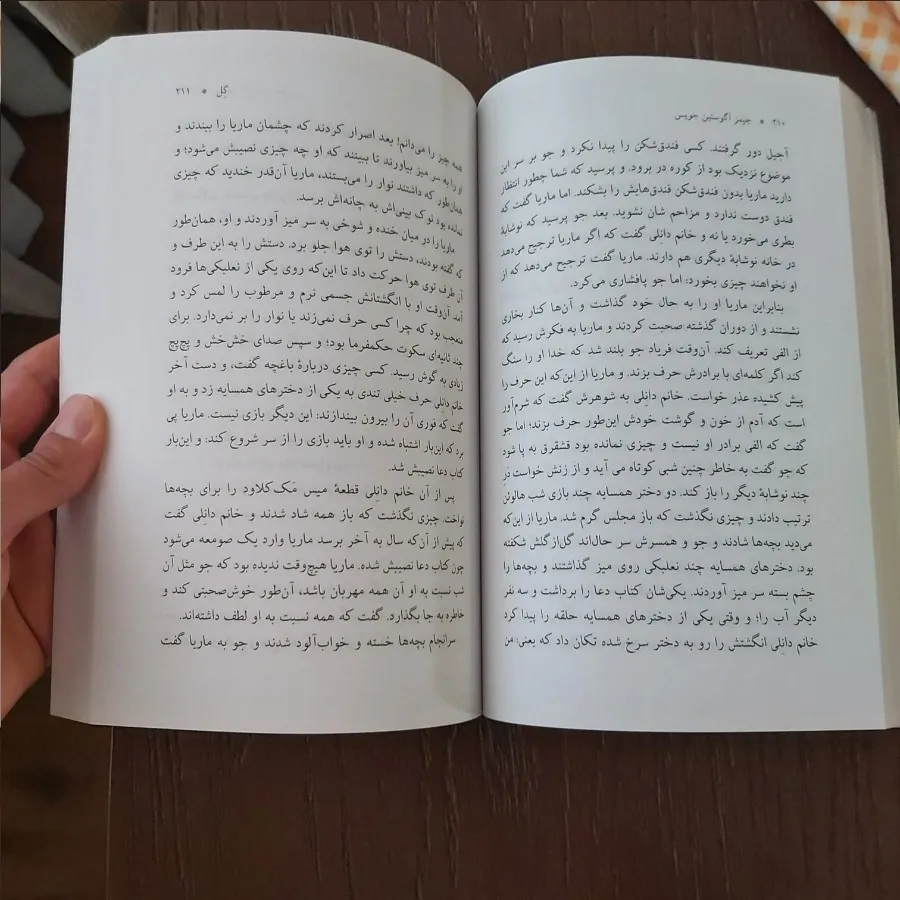 ۲۱۰ * جیمز آگوستین جویس
آجیل دور گرفتند. کسی فندق‌شکن را پیدا نکرد و جو بر سر این
موضوع نزدیک بود از کوره در برود. و پرسید که شما چطور انتظار
دارید ماریا بدون فندق‌شکن فندق‌هایش را بشکند. اما ماریا گفت که
فندق دوست ندارد و مزاحم شان نشوید. بعد جو پرسید که نوشابهٔ
بطری می‌خورد یا نه و خانم دانِلی گفت که اگر ماریا ترجیح می‌دهد
در خانه نوشابهٔ دیگری هم دارند. ماریا گفت ترجیح می‌دهد که از
او نخواهند چیزی بخورد: اما جو پافشاری می‌کرد.
بنابراین ماریا او را به حال خود گذاشت و آن‌ها کنار بخاری
نشستند و از دوران گذشته صحبت کردند و ماریا به فکرش رسید که
از الفی تعریف کند. آن‌وقت فریاد جو بلند شد که خدا او را سنگ
کند اگر کلمه‌ای با برادرش حرف بزند. و ماریا از این‌که این حرف را
پیش کشیده عذر خواست. خانم دانِلی به شوهرش گفت که شرم‌آور
است که آدم از خون و گوشت خودش این‌طور حرف بزند؛ اما جو
گفت که الفی برادر او نیست و چیزی نمانده بود قشقرق به پا شود
که جو گفت به خاطر چنین شبی کوتاه می آید و از زنش خواست دَرِ
چند نوشابهٔ دیگر را باز کند. دو دختر همسایه چند بازی شب هالوئن
ترتیب دادند و چیزی نگذشت که باز مجلس گرم شد. ماریا از این‌که
می‌دید بچه‌ها شادند و جو و همسرش سر حال‌اند گل‌ازگلش شکفته
بود. دخترهای همسایه چند نعلبکی روی میز گذاشتند و بچه‌ها را
چشم بسته سر میز آوردند. یکی‌شان کتاب دعا را برداشت و سه نفر
دیگر آب را؛ و وقتی یکی از دخترهای همسایه حلقه را پیدا کرد
خانم دانِلی انگشتش را رو به دختر سرخ شده تکان داد که یعنی: من
گِل * ۲۱۱
همه چیز را می‌دانم! بعد اصرار کردند که چشمان ماریا را ببندند و
او را به سر میز بیاورند تا ببینند که او چه چیزی نصیبش می‌شود؛ و
همان‌طور که داشتند نوار را می‌بستند، ماریا آن‌قدر خندید که چیزی
نمانده بود نوک بینی‌اش به چانه‌اش برسد.
ماریا را در میان خنده و شوخی به سر میز آوردند و او، همان‌طور
که گفته بودند، دستش را توی هوا جلو برد. دستش را به این طرف و
آن طرف توی هوا حرکت داد تا این‌که روی یکی از نعلبکی‌ها فرود
آمد. آن‌وقت او با انگشتانش جسمی نرم و مرطوب را لمس کرد و
متعجب بود که چرا کسی حرف نمی‌زند یا نوار را بر نمی‌دارد. برای
چند ثانیه‌ای سکوت حکمفرما بود؛ و سپس صدای خش‌خش و پچ‌پچ
زیادی به گوش رسید. کسی چیزی دربارهٔ باغچه گفت، و دست آخر
خانم دانِلی حرف خیلی تندی به یکی از دخترهای همسایه زد و به او
گفت که فوری آن را بیرون بیندازند: این دیگر بازی نیست. ماریا پی
برد که این‌بار اشتباه شده و او باید بازی را از سر شروع کند: و این‌بار
کتاب دعا نصیبش شد.
پس از آن خانم دانِلی قطعهٔ میس مَک‌کلاود را برای بچه‌ها
نواخت. چیزی نگذشت که باز همه شاد شدند و خانم دانِلی گفت
که پیش از آن‌که سال به آخر برسد ماریا وارد یک صومعه می‌شود
چون کتاب دعا نصیبش شده. ماریا هیچ‌وقت ندیده بود که جو مثل آن
شب نسبت به او آن همه مهربان باشد، آن‌طور خوش‌صحبتی کند و
خاطره به جا بگذارد. گفت که همه نسبت به او لطف داشته‌اند.
سرانجام بچه‌ها خسته و خواب‌آلود شدند و جو به ماریا گفت